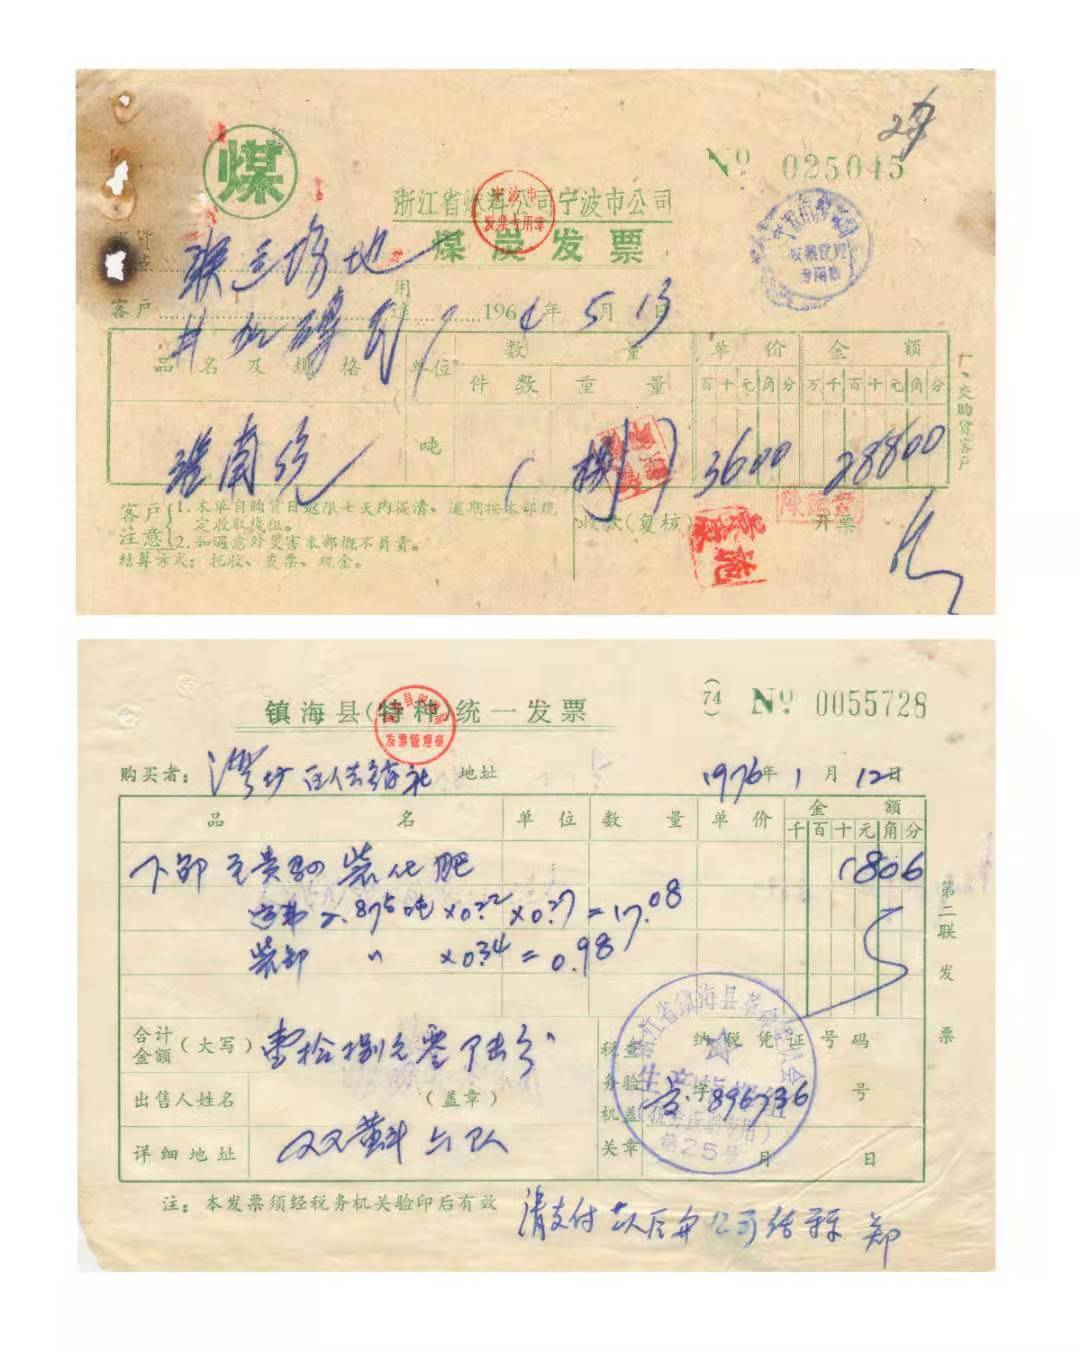 煤
№ 025045
浙江省燃料公司宁波市公司
煤炭发票
客户 用途 196 年 5 月 13 日
品名及规格 单位 数量 单价 金额
件数 重量 百十元角分 万千百十元角分
吨 捌 3600 28800
客户注意 1.本单自购货日起限七天内提清、逾期按本部规定收取栈租。
2.如遇意外灾害本部概不负责。
结算方式：托收、支票、现金。
收款(复核) 开票
交购货客户
镇海县(特种)统一发票
(74) № 0055728
发票管理章
购买者： 地址 1976年 1 月 12日
品名 单位 数量 单价 金额
千百十元角分
装化肥 1806
2.875吨 ×0.22 ×0.27 = 17.08
装卸 〃 ×0.34 = 0.98
第二联 发票
合计金额(大写) 壹拾捌元零陆分
税务机关 查验盖章 纳税凭证号码
浙江省镇海县革命委员会
第25号
出售人姓名 (盖章) 字 896736 号
详细地址 双黄 六队 月 日
注：本发票须经税务机关验印后有效
请支付 郑